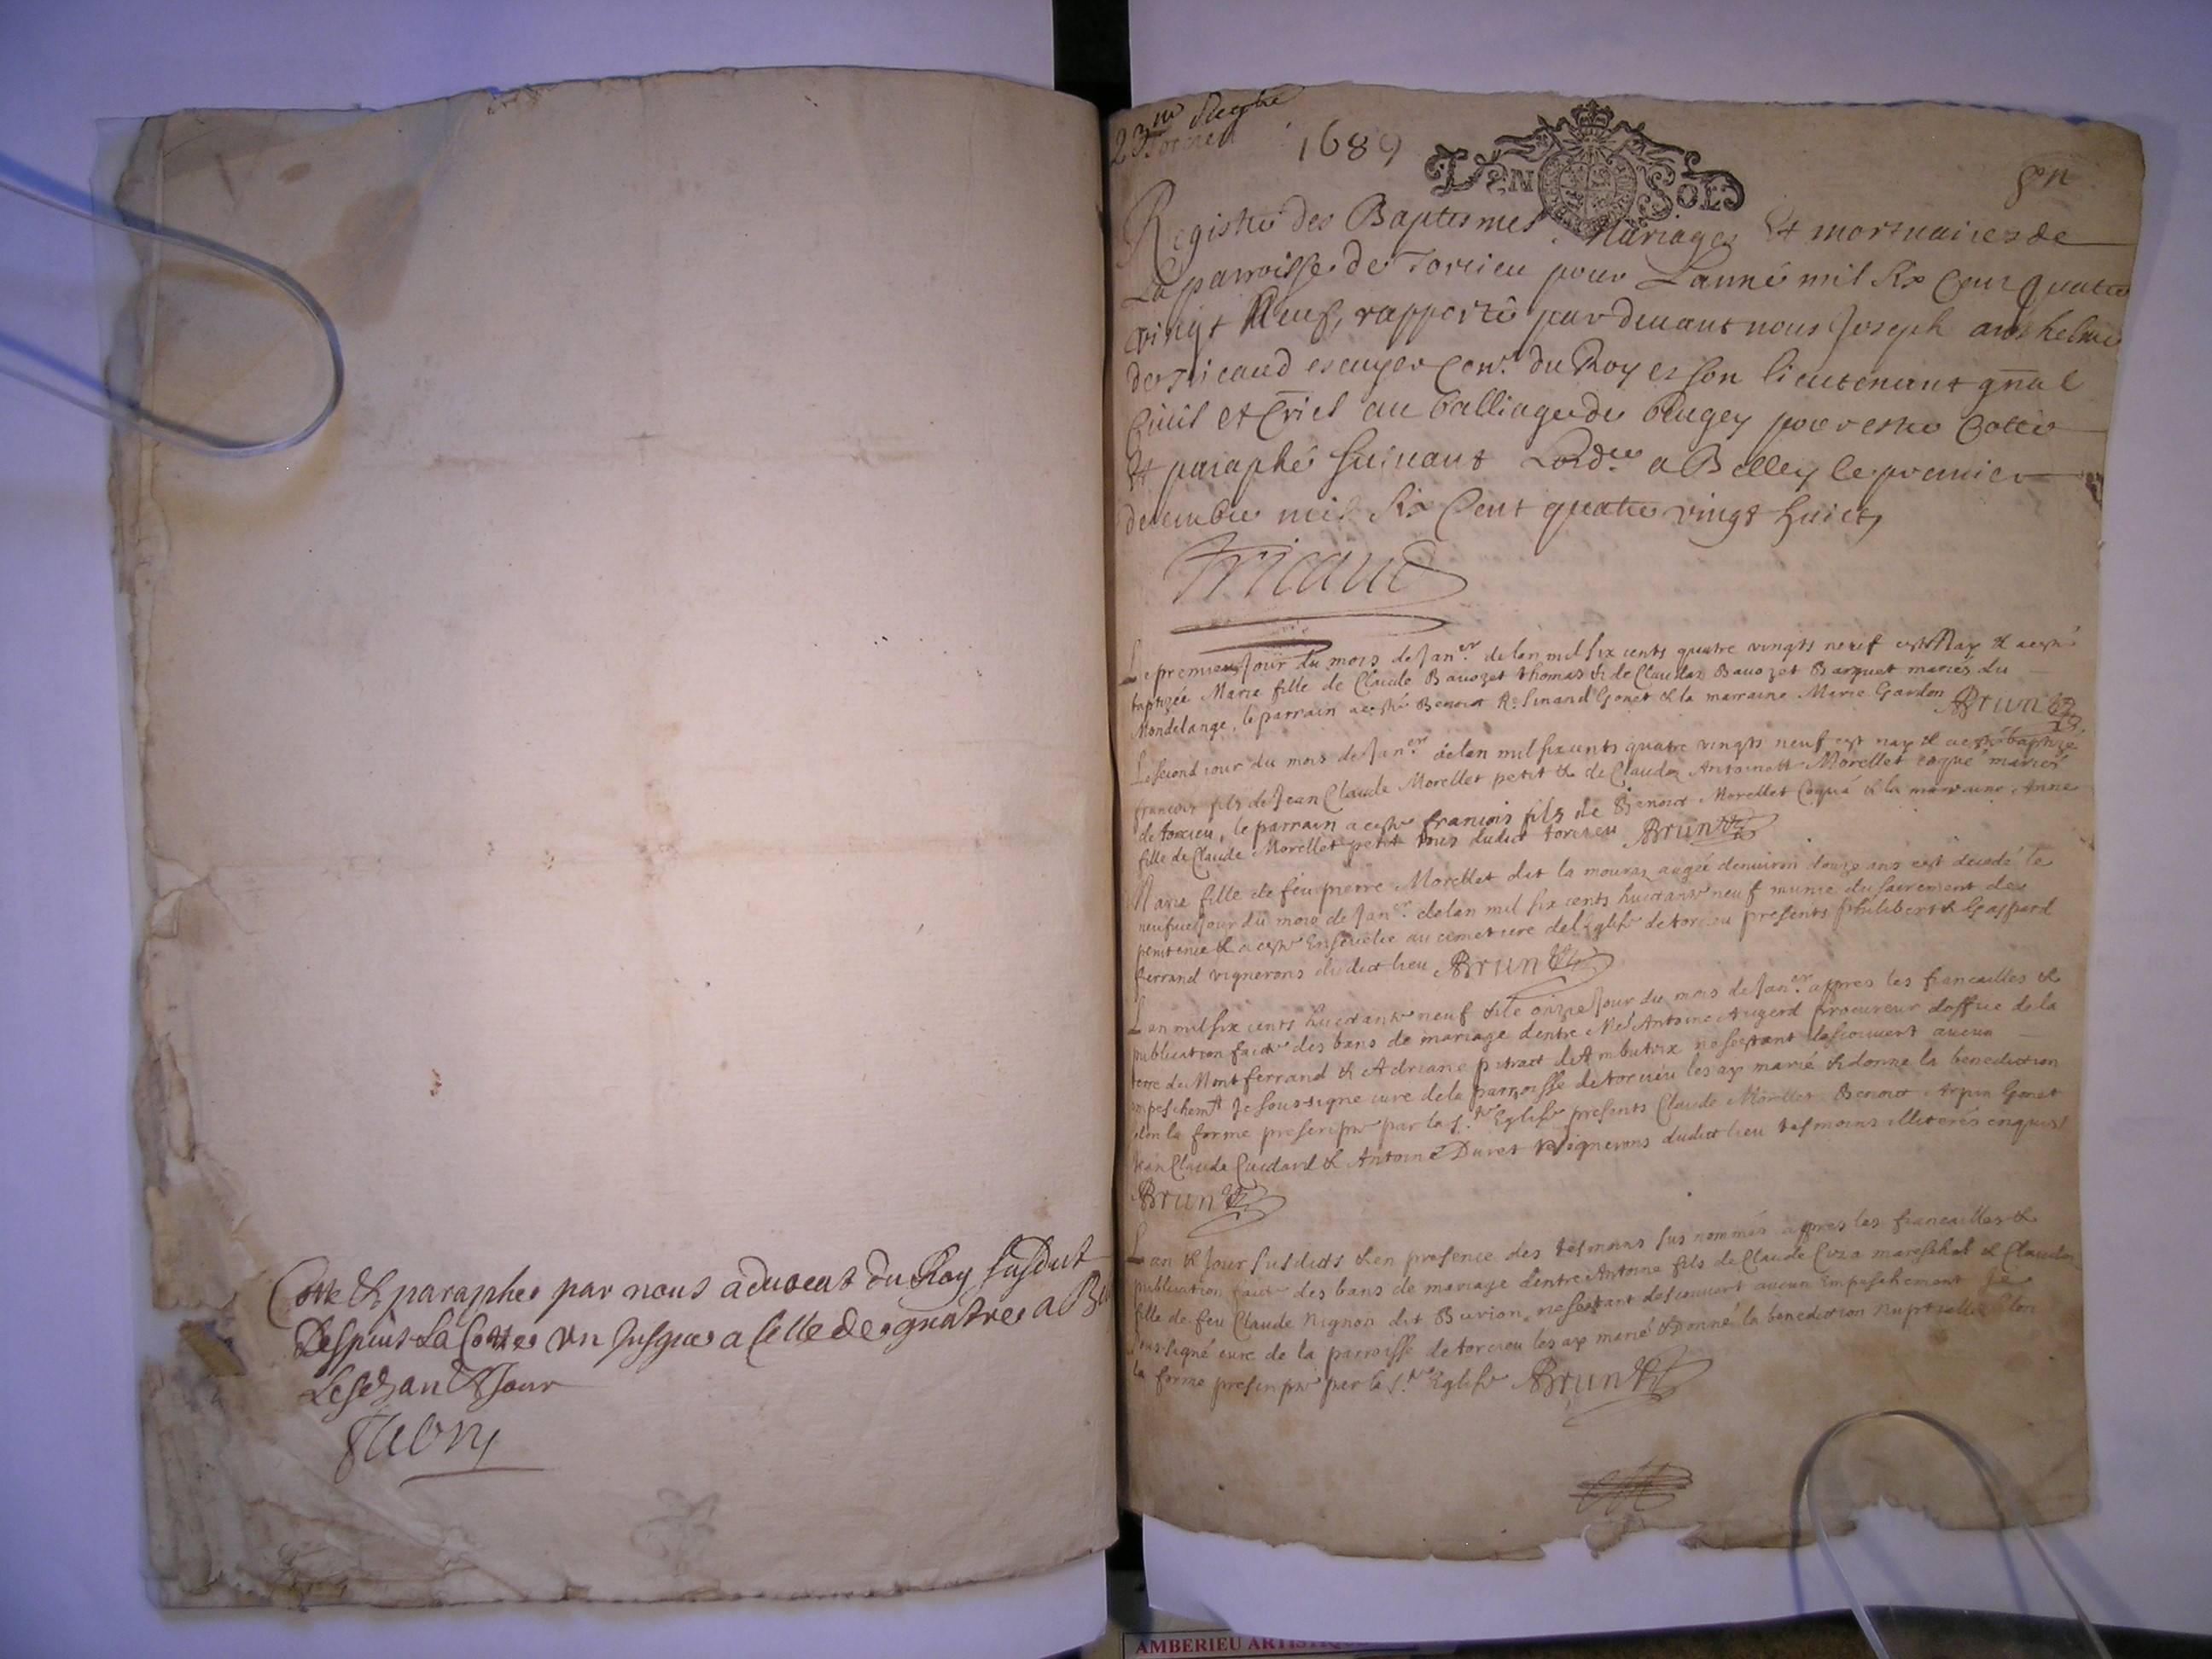 Cotté & paraphé par nous advocat du Roy susdit
Despuis La Cotte un Jusques a celle de quatre a
Lesd. an & Jour
23me Reg.tre
1689
DEN SOLS
Registre des Baptesmes, Mariages Et mortuaires de
La parroisse de Torcieu pour Lanné mil six Cent quatre
vingt Neuf, rapporté par devant nous Joseph anthelme
de Tricaud escuyer Con.r du Roy et son lieutenant gnal
Civil et Criel au balliage de Bugey pour estre Cotté
Et paraphé suivant Lord.ce a Belley le premier
decembre mil six Cent quatre vingt huict
Tricaud
Le premier Jour du mois de Jan.er de lan mil six cents quatre vingts neuf est nay & a esté
baptizée Marie fille de Claude Bauozet thomas & de Claudaz Bauozet Barquet mariés du
Mondelange, le parrain a esté Benoist Gonet & la marraine Marie Gardon Brun
Le second iour du mois de Jan.er de lan mil six cents quatre vingts neuf est nay & a esté baptizé
francois fils de Jean Claude Morellet petit & de Claudaz Antoinette Morellet coqué mariés
de torcieu, le parrain a esté francois fils de Benoist Morellet Coqué & la marraine Anne
fille de Claude Morellet petit tous dudict torcieu Brun
Marie fille de feu pierre Morellet dit la mouraz augée denuiron douze ans est decedé le
neufue Jour du mois de Jan.er de lan mil six cents huictante neuf munie du sacrement de
penitence & a esté Enseuelie au cimetiere de leglise de torcieu presents philibert & Gaspard
ferrand vignerons dudict lieu Brun
Lan mil six cents huictante neuf & le onzie Jour du mois de Jan.er appres les fiancailles &
publication faicte des bans de mariage dentre Me Antoine Augerd procureur doffice de la
terre de Montferrand & Adriane de Ambutrix ne sestant descouuert aucun
empeschemt Je soussigne cure de la parroisse de torcieu les ay marié & donné la benediction
selon la forme prescripte par la S.te Eglise presents Claude Morellet Benoist Arpin Gonet
Jean Claude Cuidard & Antoine Duret vignerons dudict lieu tesmoins illiterés enquis
Brun
Lan & Jour susdicts & en presence des tesmoins sus nommés appres les fiancailles &
publication faicte des bans de mariage dentre Antoine fils de Claude Cuza mareschal & Claudaz
fille de feu Claude Nignon dit Burion, ne sestant descouuert aucun Empeschement Je
soussigné cure de la parroisse de torcieu les ay marié & donné la benediction nuptialle selon
la forme prescripte par la S.te Eglise Brun
AMBERIEU